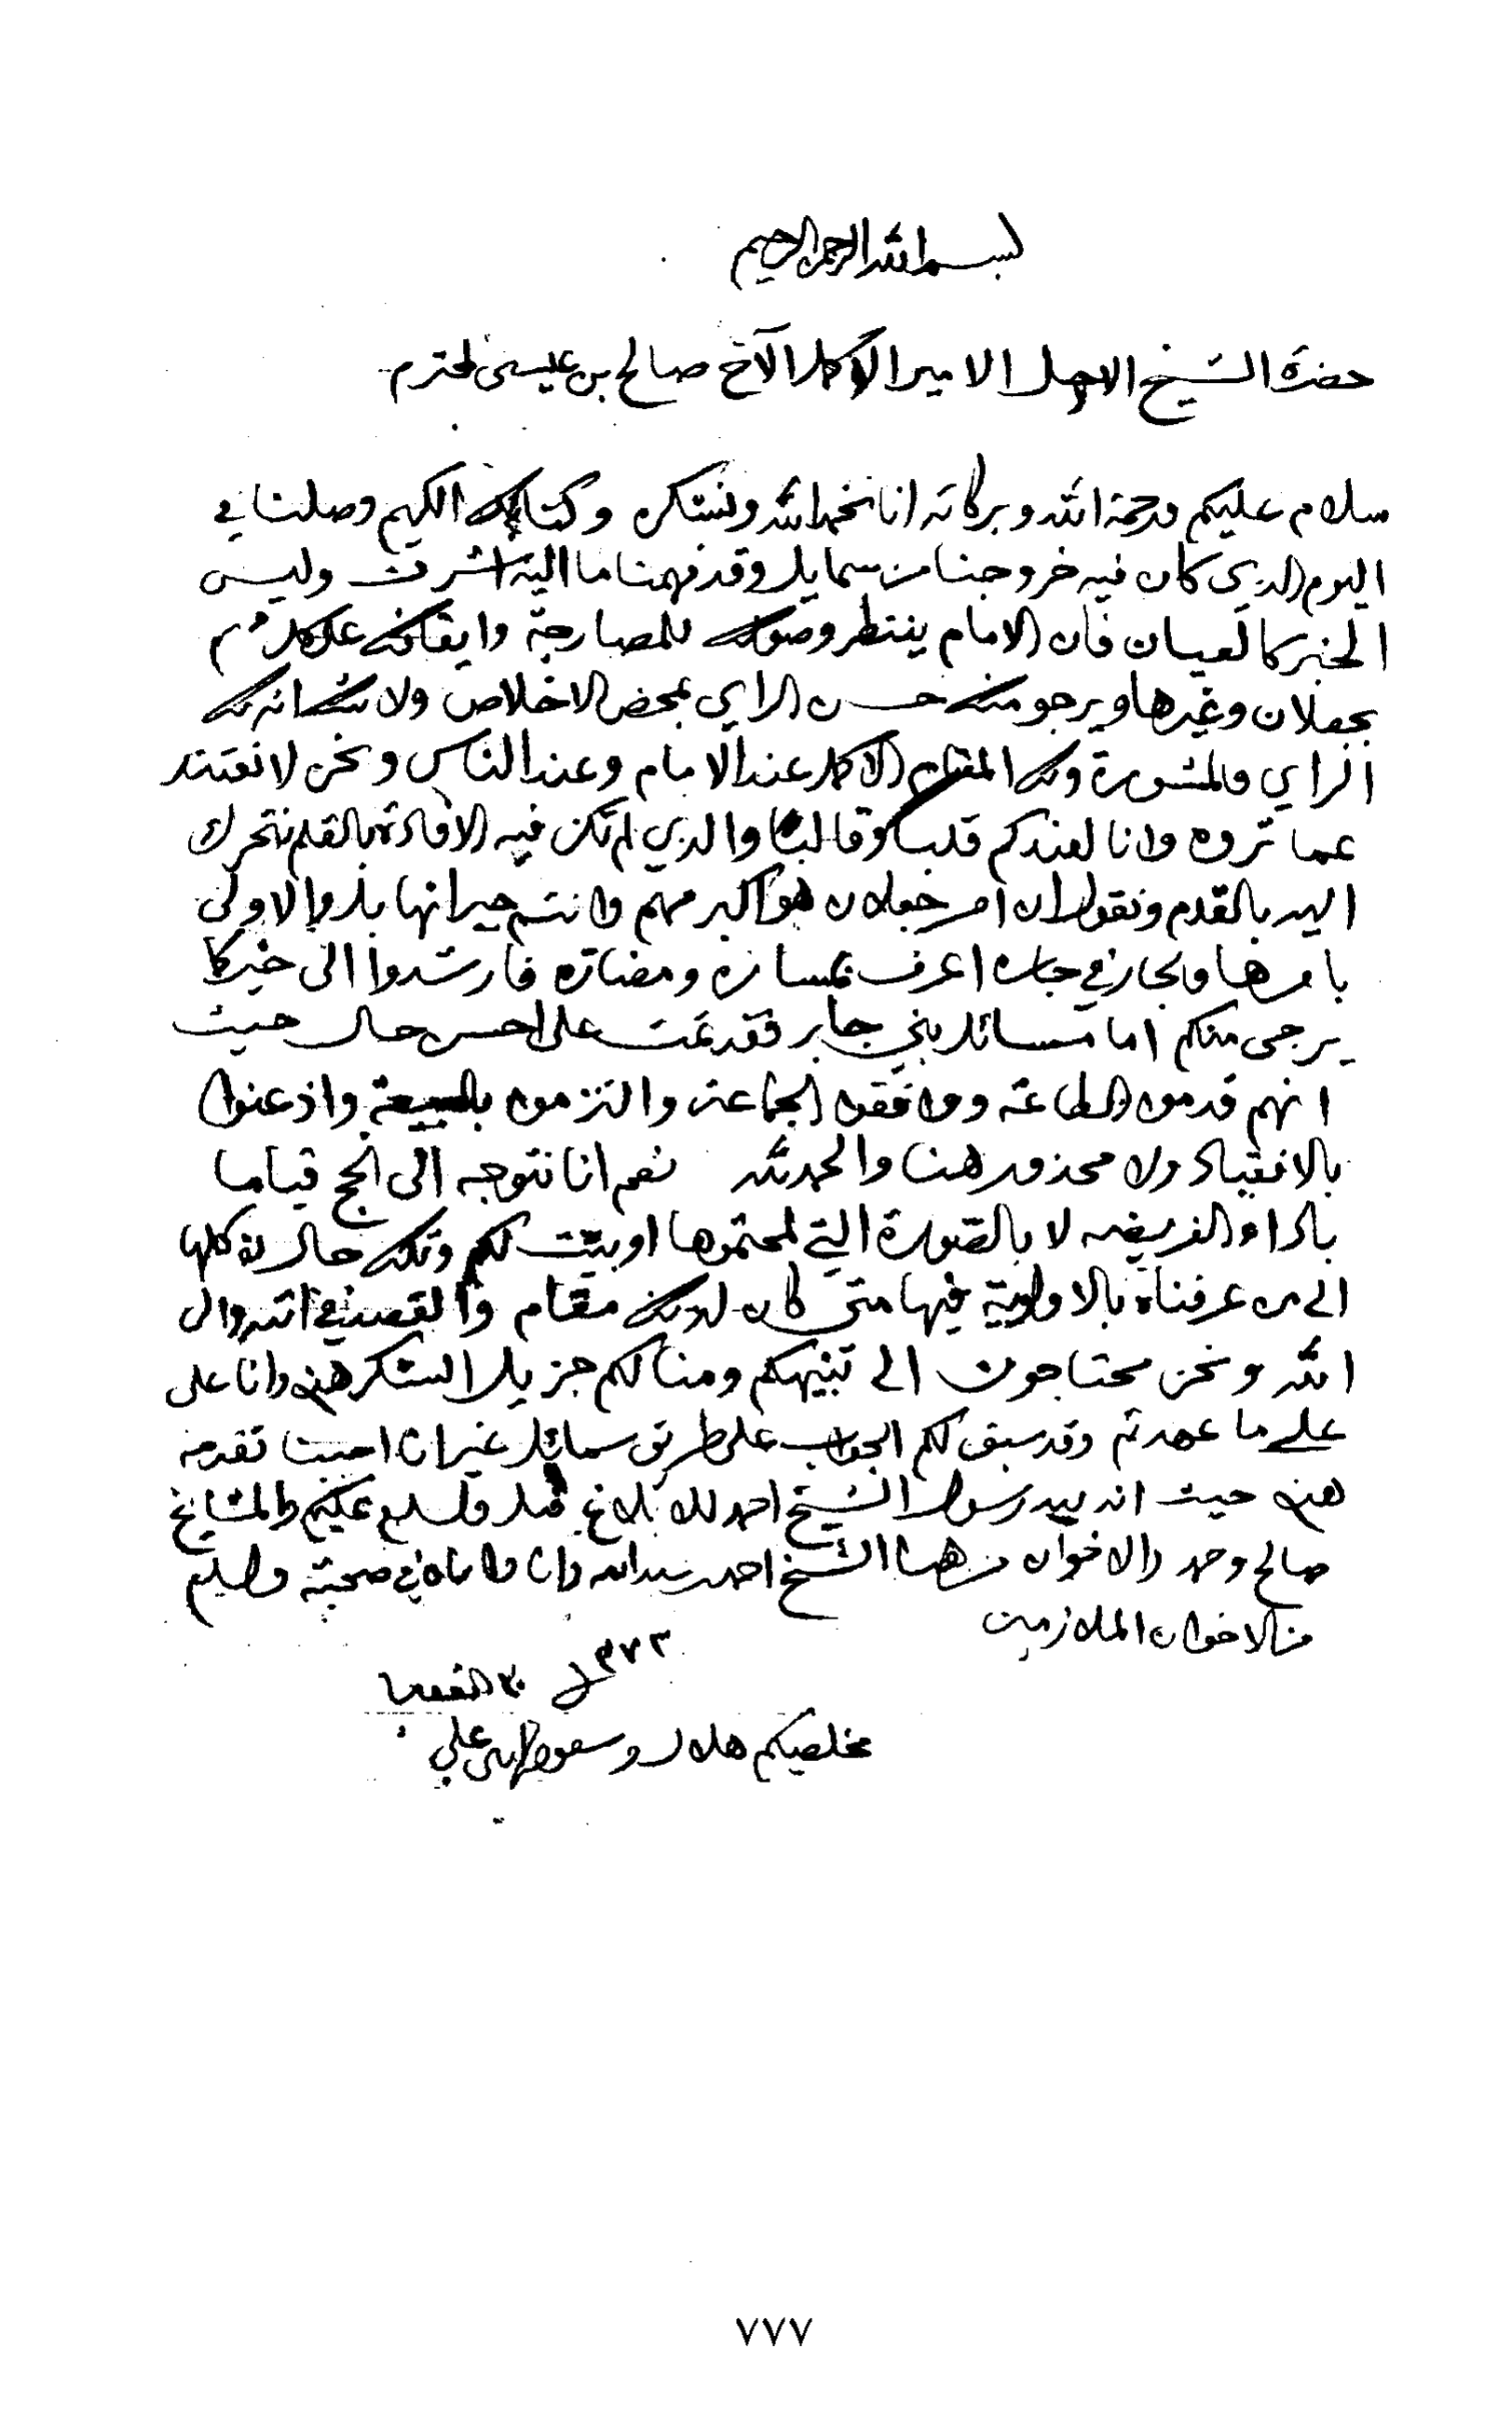 بسم الله الرحمن الرحيم
حضرة الشيخ الاجل الامير الاكمل الآخ صالح بن عيسى المحترم
سلام عليكم ورحمة الله وبركاته انا نحمد الله ونشكره وكتابك الكريم وصلنا في
اليوم الذي كان فيه خروجنا من سمايل وقد فهمنا ما اليه اشرت وليس
الخبر كالعيان فان الامام ينتظر وصولك للمصارحة وايقافك على كل مهم
بجعلان وغيرها ويرجو منك حسن الراي بمحض الاخلاص ولا شك انه لك
الراي والمشورة ولك المقام الاكمل عند الامام وعند الناس ونحن لا نفتند
عما تروه وانا لعندكم قلبا وقالبا والذي لم تكن فيه الافادة بالقلم نتحرك
اليه بالقدم ونقول ان امر جعلان هو اكبر مهم وانتم جيرانها بل والاولى
بامرها والجار في جاره اعرف بمساره ومضاره فارشدوا الى خير كما
يرجى منكم اما مسائل بني جابر فقد تمت على احسن حال حيث
انهم قدموا الطاعة ووافقوا الجماعة والتزموا بالبيعة واذعنوا
بالانقياد ولا محذور هنا والحمد لله نعم انا نتوجه الى الحج قياما
باداء الفريضه لا بالصورة التي لمحتموها او بيّتت لكم وتلك حال نوكلها
الى من عرفناه بالاولوية فيها متى كان لذلك مقام والقصد في الله والى
الله ونحن محتاجون الى تنبيهكم ومنا لكم جزيل الشكر هذه وانا على
على ما عهدتم وقد سبق لكم الجواب على طريق سمائل غير ان احببنا تقدمه
هذه حيث انه بيد رسول الشيخ احمد للابلاغ وسلم عليكم والمشايخ
صالح وحمد والاخوان من هنا الشيخ احمد وانا واياه في صحبته والسليم
من الاخوان الملازمين
٣٠ القعدة ١٣٧٣
مخلصيكم هلال وسعود ابني علي
٧٧٧